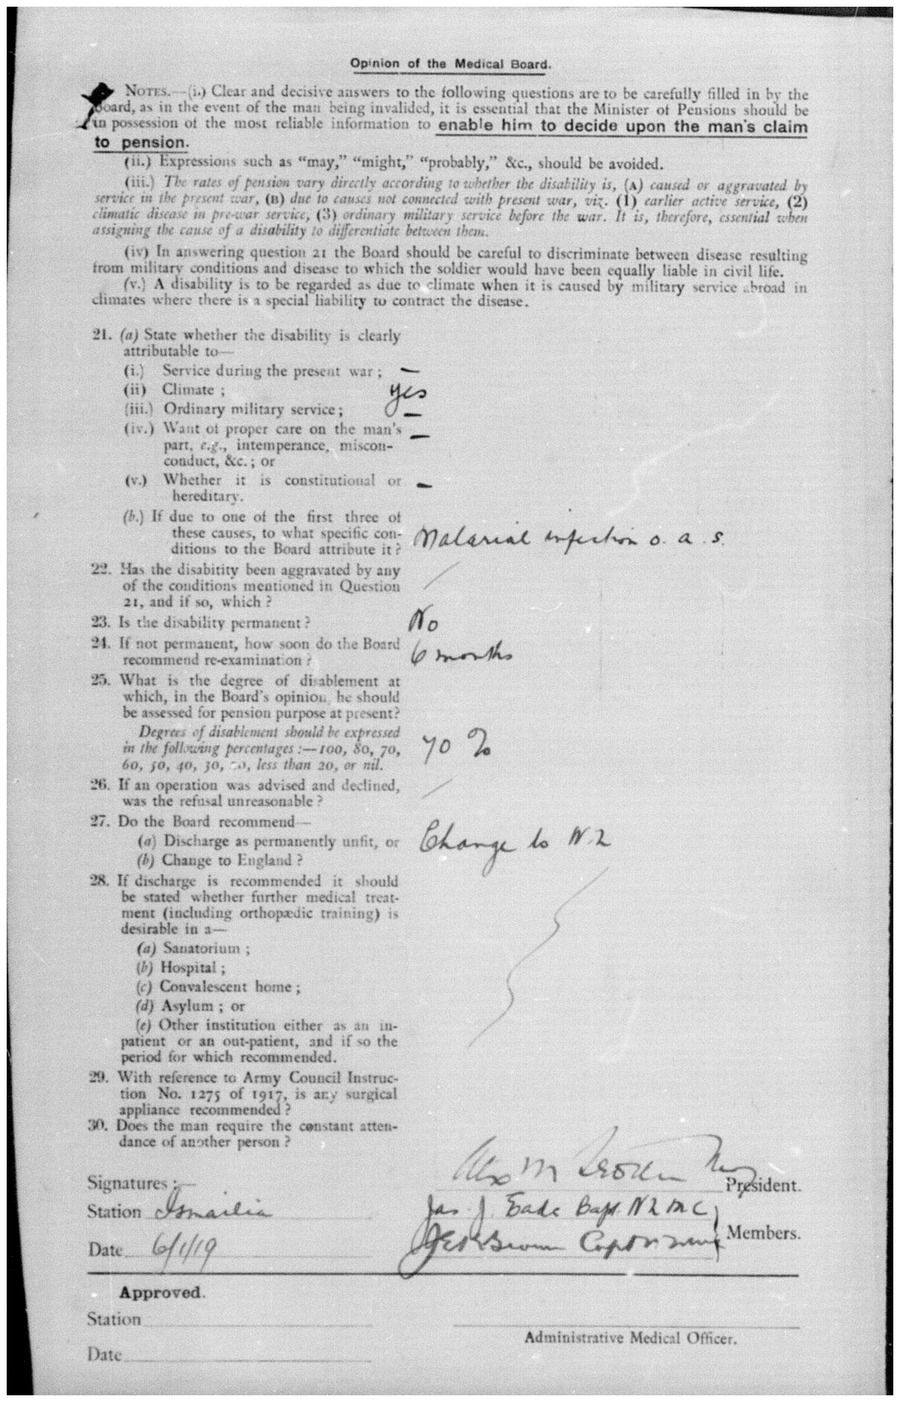 Opinion of the Medical Board.
NOTES.—(i.) Clear and decisive answers to the following questions are to be carefully filled in by the
Board, as in the event of the man being invalided, it is essential that the Minister of Pensions should be
in possession of the most reliable information to enable him to decide upon the man's claim
to pension.
(ii.) Expressions such as "may," "might," "probably," &c., should be avoided.
(iii.) The rates of pension vary directly according to whether the disability is, (A) caused or aggravated by
service in the present war, (B) due to causes not connected with present war, viz. (1) earlier active service, (2)
climatic disease in pre-war service, (3) ordinary military service before the war. It is, therefore, essential when
assigning the cause of a disability to differentiate between them.
(iv) In answering question 21 the Board should be careful to discriminate between disease resulting
from military conditions and disease to which the soldier would have been equally liable in civil life.
(v.) A disability is to be regarded as due to climate when it is caused by military service abroad in
climates where there is a special liability to contract the disease.
21. (a) State whether the disability is clearly
attributable to—
(i.) Service during the present war; —
(ii) Climate; yes
(iii.) Ordinary military service; —
(iv.) Want of proper care on the man's —
part, e.g., intemperance, miscon-
conduct, &c.; or
(v.) Whether it is constitutional or —
hereditary.
(b.) If due to one of the first three of
these causes, to what specific con- Malarial infection o. a. s.
ditions to the Board attribute it?
22. Has the disabitity been aggravated by any
of the conditions mentioned in Question
21, and if so, which?
23. Is the disability permanent? No
24. If not permanent, how soon do the Board
recommend re-examination? 6 months
25. What is the degree of disablement at
which, in the Board's opinion, he should
be assessed for pension purpose at present?
Degrees of disablement should be expressed
in the following percentages:—100, 80, 70, 70 %
60, 50, 40, 30, 20, less than 20, or nil.
26. If an operation was advised and declined,
was the refusal unreasonable?
27. Do the Board recommend—
(a) Discharge as permanently unfit, or Change to N.Z
(b) Change to England?
28. If discharge is recommended it should
be stated whether further medical treat-
ment (including orthopædic training) is
desirable in a—
(a) Sanatorium;
(b) Hospital;
(c) Convalescent home;
(d) Asylum; or
(e) Other institution either as an in-
patient or an out-patient, and if so the
period for which recommended.
29. With reference to Army Council Instruc-
tion No. 1275 of 1917, is any surgical
appliance recommended?
30. Does the man require the constant atten-
dance of another person?
Signatures:— Alex M President.
Station Ismailia Jas. J. Eade Capt. N Z M C
Members.
Date 6/1/19 Brown Capt
Approved.
Station
Administrative Medical Officer.
Date